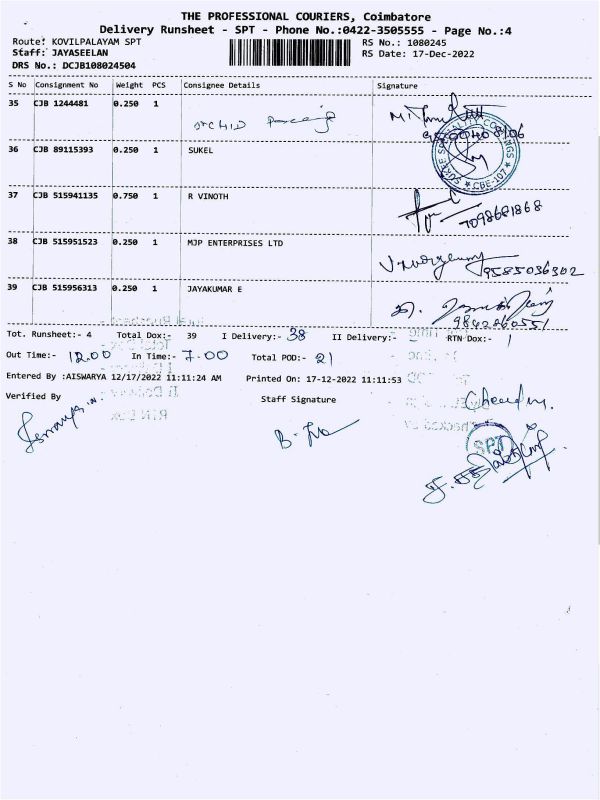 THE PROFESSIONAL COURIERS, Coimbatore
Delivery Runsheet - SPT - Phone No.:0422-3505555 - Page No.:4
Route: KOVILPALAYAM SPT
RS No.: 1080245
Staff: JAYASEELAN
RS Date: 17-Dec-2022
DRS No.: DCJB108024504
S No Consignment No Weight PCS Consignee Details Signature
35 CJB 1244481 0.250 1 ORCHID
36 CJB 89115393 0.250 1 SUKEL
CBE-107
37 CJB 515941135 0.750 1 R VINOTH
7098681868
38 CJB 515951523 0.250 1 MJP ENTERPRISES LTD
9585036302
39 CJB 515956313 0.250 1 JAYAKUMAR E
9842860551
Tot. Runsheet:- 4 Total Dox:- 39 I Delivery:- 38 II Delivery:- RTN Dox:- 1
Out Time:- 12.00 In Time:- 7.00 Total POD:- 21
Entered By :AISWARYA 12/17/2022 11:11:24 AM Printed On: 17-12-2022 11:11:53
Verified By Staff Signature
SPT